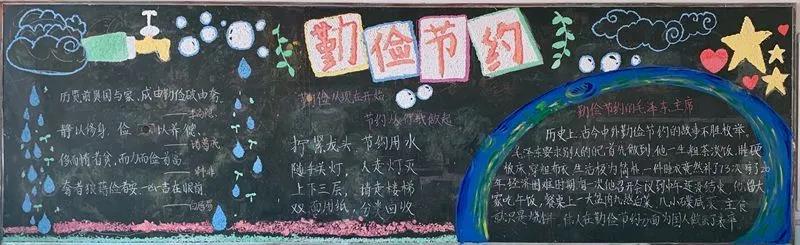 勤俭节约
历览前贤国与家，成由勤俭破由奢。
——李商隐
静以修身，俭以养德。
——诸葛亮
俭而情者贫，而力而俭者富。
——韩非
奢者狼藉俭者安，一凶一吉在眼前
——白居易
勤俭从现在开始
节约从你我做起
拧紧龙头，节约用水
随手关灯，人走灯灭
上下三层，请走楼梯
双面用纸，分类回收
勤俭节约的毛泽东主席
历史上，古今中外勤俭节约的故事不胜枚举。
毛泽东要求别人的自己首先做到，他一生粗茶淡饭，睡硬
板床，穿粗布衣，生活极为简朴，一件睡衣竟然补了73次、穿了20
年。经济困难时期，有一次他召开会议到中午还没结束，他留大
家吃午饭，餐桌上一大盆肉丸熬白菜、几小碟咸菜，主食
就只是烧饼。伟人在勤俭节约方面为国人做出了表率